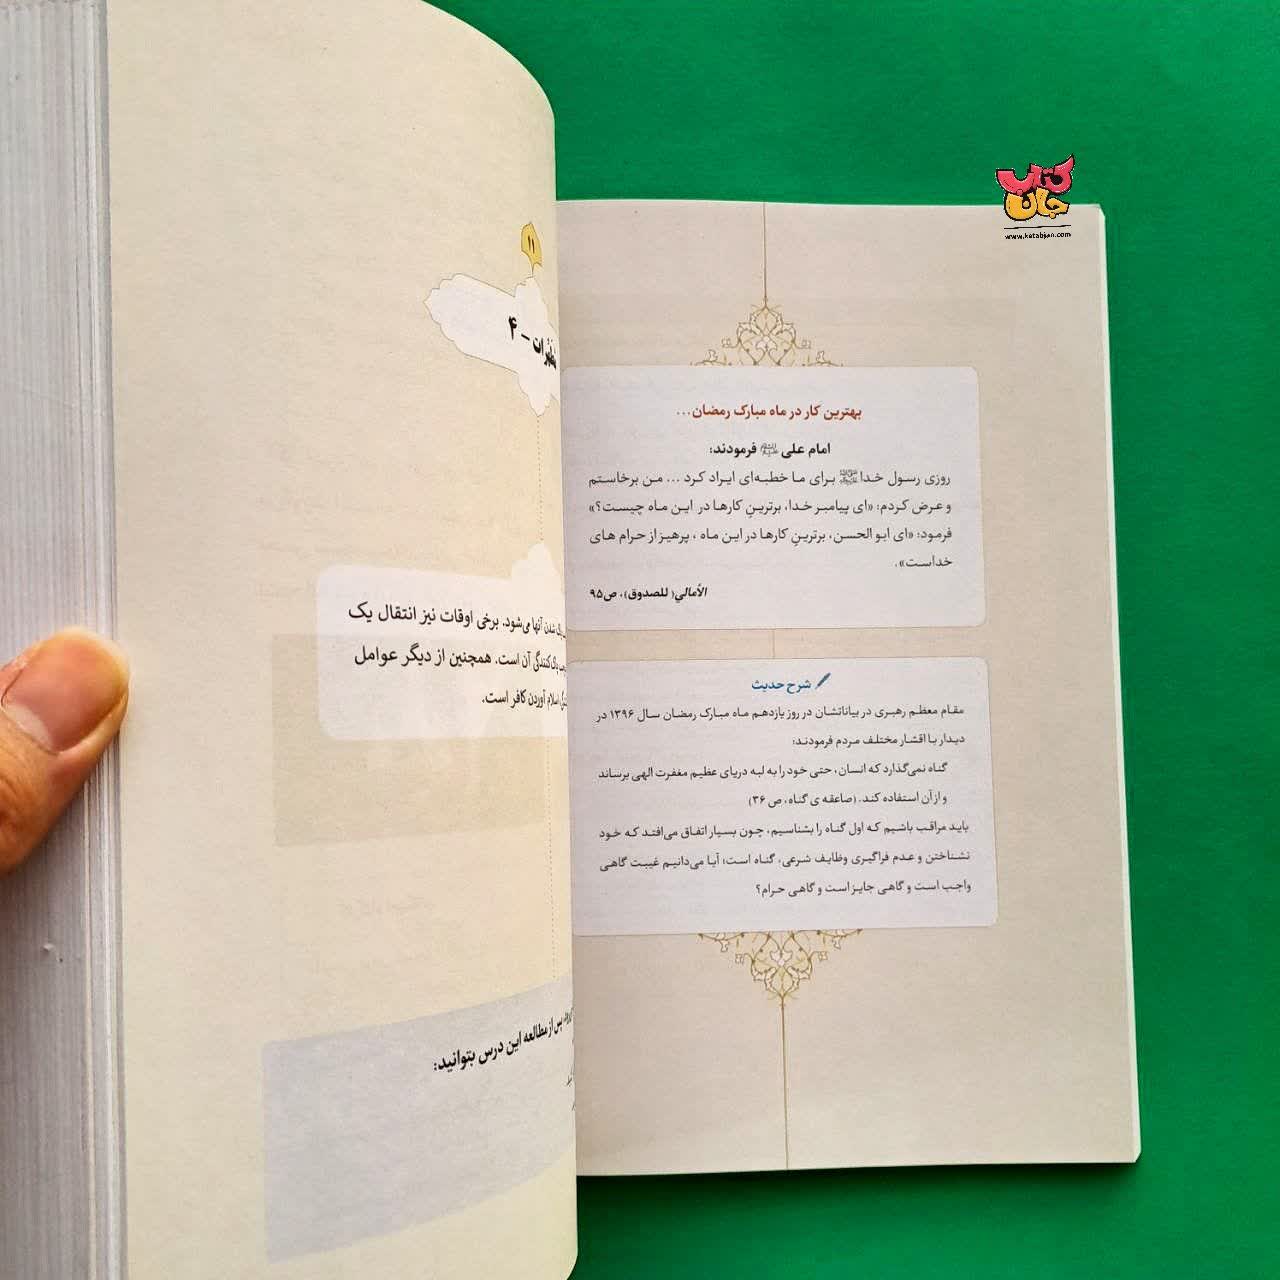 کتاب
جان
www.ketabjan.com
بهترین کار در ماه مبارک رمضان...
امام علی علیه‌السلام فرمودند:
روزی رسول خدا ﷺ برای ما خطبه‌ای ایراد کرد ... من برخاستم
و عرض کردم: «ای پیامبر خدا، برترینِ کارها در این ماه چیست؟»
فرمود: «ای ابو الحسن، برترینِ کارها در این ماه ، پرهیز از حرام های
خداست».
الأمالي( للصدوق)، ص۹۵
شرح حدیث
مقام معظم رهبری در بیاناتشان در روز یازدهم ماه مبارک رمضان سال ۱۳۹۶ در
دیدار با اقشار مختلف مردم فرمودند:
گناه نمی‌گذارد که انسان، حتی خود را به لبه دریای عظیم مغفرت الهی برساند
و از آن استفاده کند. (صاعقه ی گناه، ص ۳۶)
باید مراقب باشیم که اول گناه را بشناسیم، چون بسیار اتفاق می‌افتد که خود
نشناختن و عدم فراگیری وظایف شرعی، گناه است؛ آیا می‌دانیم غیبت گاهی
واجب است و گاهی جایز است و گاهی حرام؟
۱۱
مطهرات - ۴
پاک شدن آنها می‌شود. برخی اوقات نیز انتقال یک
پاک‌کنندگی آن است. همچنین از دیگر عوامل
اسلام آوردن کافر است.
پس از مطالعه این درس بتوانید: